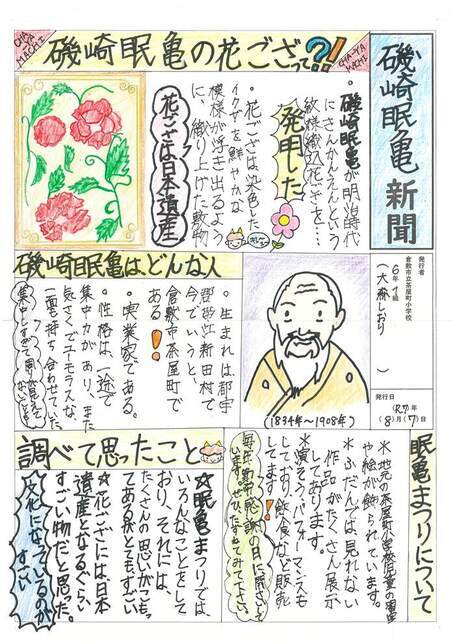 磯崎眠亀新聞
発行者
倉敷市立茶屋町小学校
6年1組
(大森しおり)
発行日
(R7)年
(8)月(17)日
CHA-YA
MACHI
磯崎眠亀の花ござって?!
CHA-YA
MACHI
・磯崎眠亀が明治時代
にさんかんえんという
紋様織込花ござを…
発明した
・花ござは染色した
イクザを鮮やかな
模様が浮き出るよう
に、織り上げた敷物
花ござは日本遺産
磯崎眠亀は、どんな人
・生まれは都宇
郡帯江新田村で
今でいうと、
倉敷市茶屋町で
ある!!
・実業家である。
・性格は、一途で
集中力があり、また
気さくでユーモラスな
一面も持ち合わせていた。
(1834年~1908年)
眠亀まつりについて
*地元の茶屋町小学校児童の習字
や絵が飾られています。
*ふだんでは、見れない
作品がたくさん展示
してあります。
*演そう、パフォーマンスも
しており、飲食なども販売
しています。
調べて思ったこと
☆眠亀まつりでは、
いろんなことをして
おり、それには、
たくさんの思いがこもっ
てある所がとてもすごい
☆花ござには日本
遺産となるぐらい
すごい物だと思った。